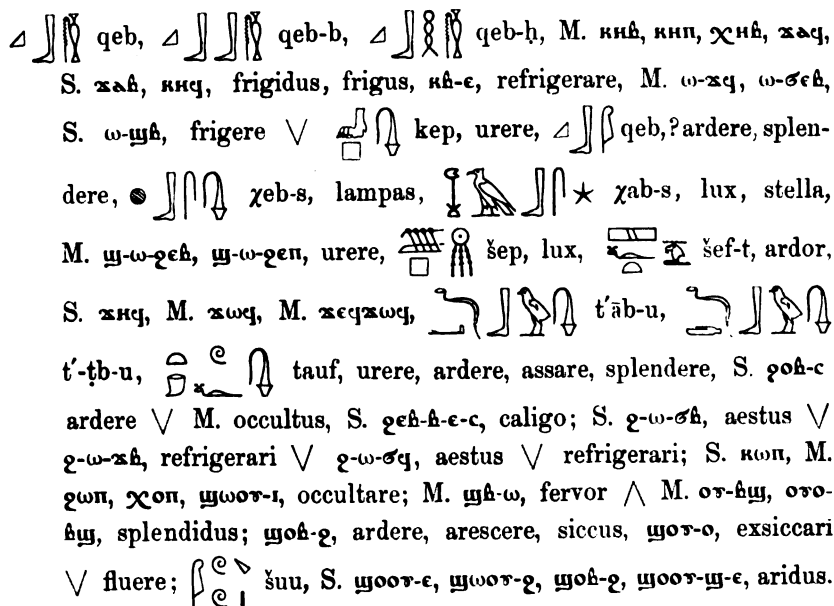 qeb, qeb-b, qeb-ḥ, M. ⲕⲏⲃ, ⲕⲏⲡ, ⲭⲏⲃ, ϫⲁϥ,
S. ϫⲁⲃ, ⲕⲏϥ, frigidus, frigus, ⲕⲃ-ⲉ, refrigerare, M. ⲱ-ϫϥ, ⲱ-ϭⲉⲃ,
S. ⲱ-ϣⲃ, frigere ∨ kep, urere, qeb,? ardere, splen-
dere, χeb-s, lampas, χab-s, lux, stella,
M. ϣ-ⲱ-ϩⲉⲃ, ϣ-ⲱ-ϩⲉⲡ, urere, šep, lux, šef-t, ardor,
S. ϫⲏϥ, M. ϫⲱϥ, M. ϫⲉϥϫⲱϥ, t′āb-u,
t′-ṭb-u, tauf, urere, ardere, assare, splendere, S. ϩⲟⲃ-ⲥ
ardere ∨ M. occultus, S. ϩⲉⲃ-ⲃ-ⲉ-ⲥ, caligo; S. ϩ-ⲱ-ϭⲃ, aestus ∨
ϩ-ⲱ-ϫⲃ, refrigerari ∨ ϩ-ⲱ-ϭϥ, aestus ∨ refrigerari; S. ⲕⲱⲡ, M.
ϩⲱⲡ, ⲭⲟⲡ, ϣⲱⲟⲩ-ⲓ, occultare; M. ϣⲃ-ⲱ, fervor ∧ M. ⲟⲩ-ⲃϣ, ⲟⲩⲟ-
ⲃϣ, splendidus; ϣⲟⲃ-ϩ, ardere, arescere, siccus, ϣⲟⲩ-ⲟ, exsiccari
∨ fluere; šuu, S. ϣⲟⲟⲩ-ⲉ, ϣⲱⲟⲩ-ϩ, ϣⲟⲃ-ϩ, ϣⲟⲟⲩ-ϣ-ⲉ, aridus.